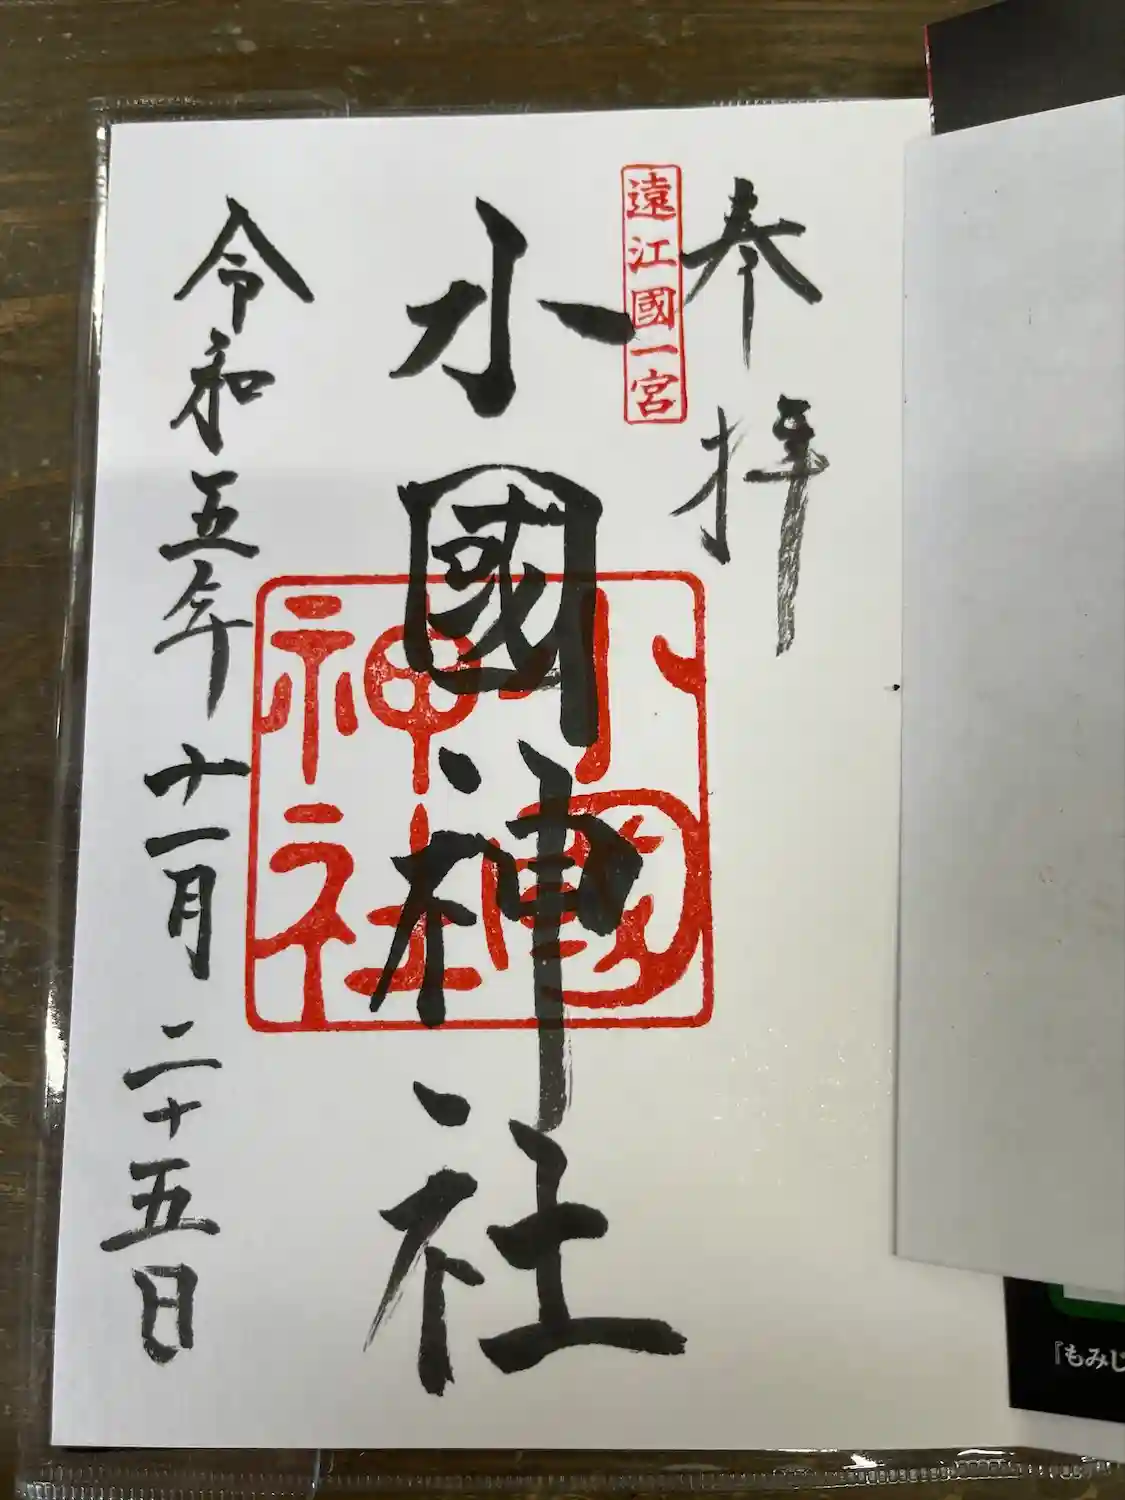 奉拝
遠江國一宮
小國神社
小國
神社
令和五年十一月二十五日
『もみじ